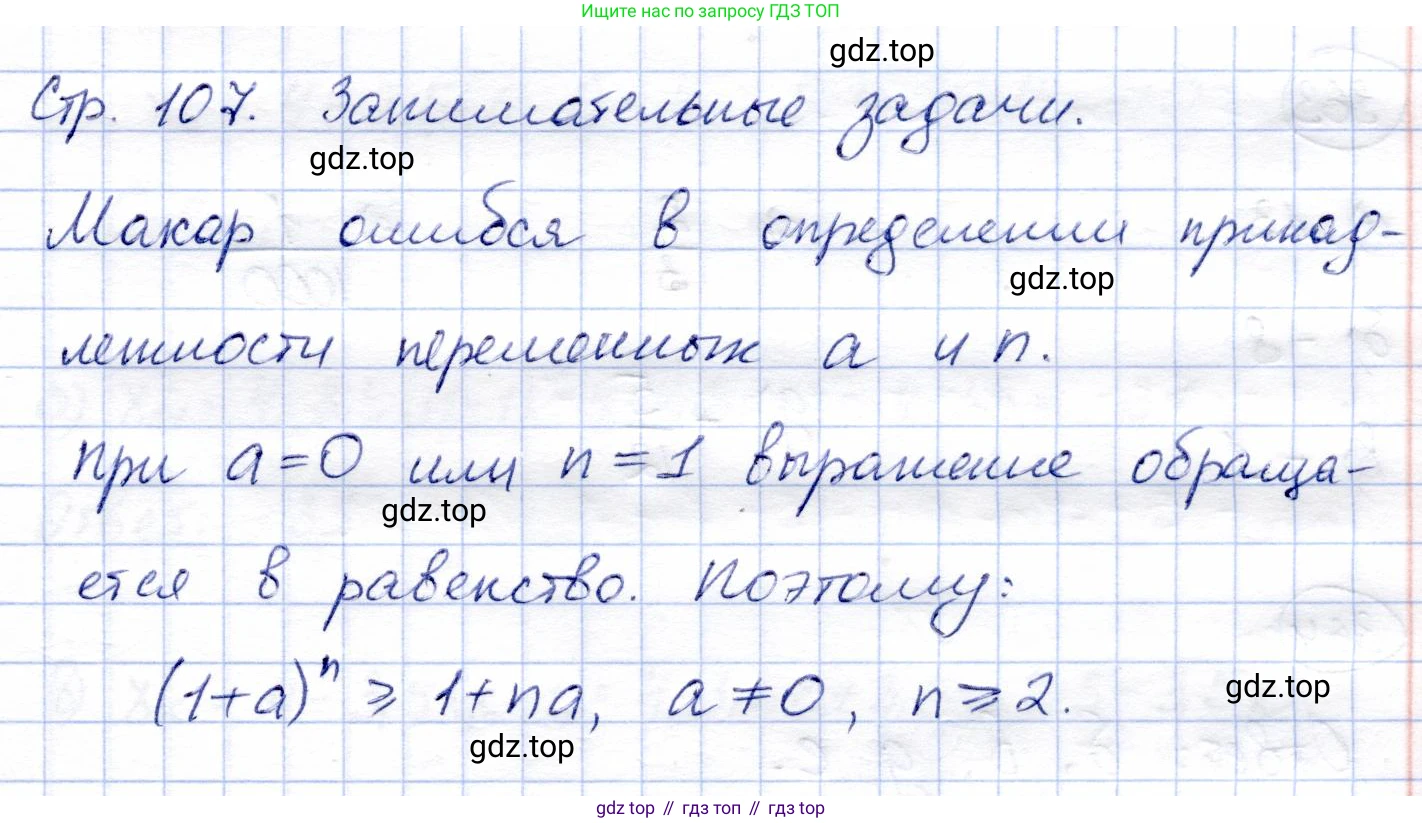 Ищите нас по запросу ГДЗ ТОП
gdz.top
Стр. 107. Занимательные задачи.
gdz.top
Макар ошибся в определении принад-
gdz.top
лежности переменных a и n.
при a=0 или n=1 выражение обраща-
gdz.top
ется в равенство. Поэтому:
(1+a)ⁿ ⩾ 1+na, a≠0, n⩾2.
gdz.top
gdz.top
gdz top // гдз топ // гдз top